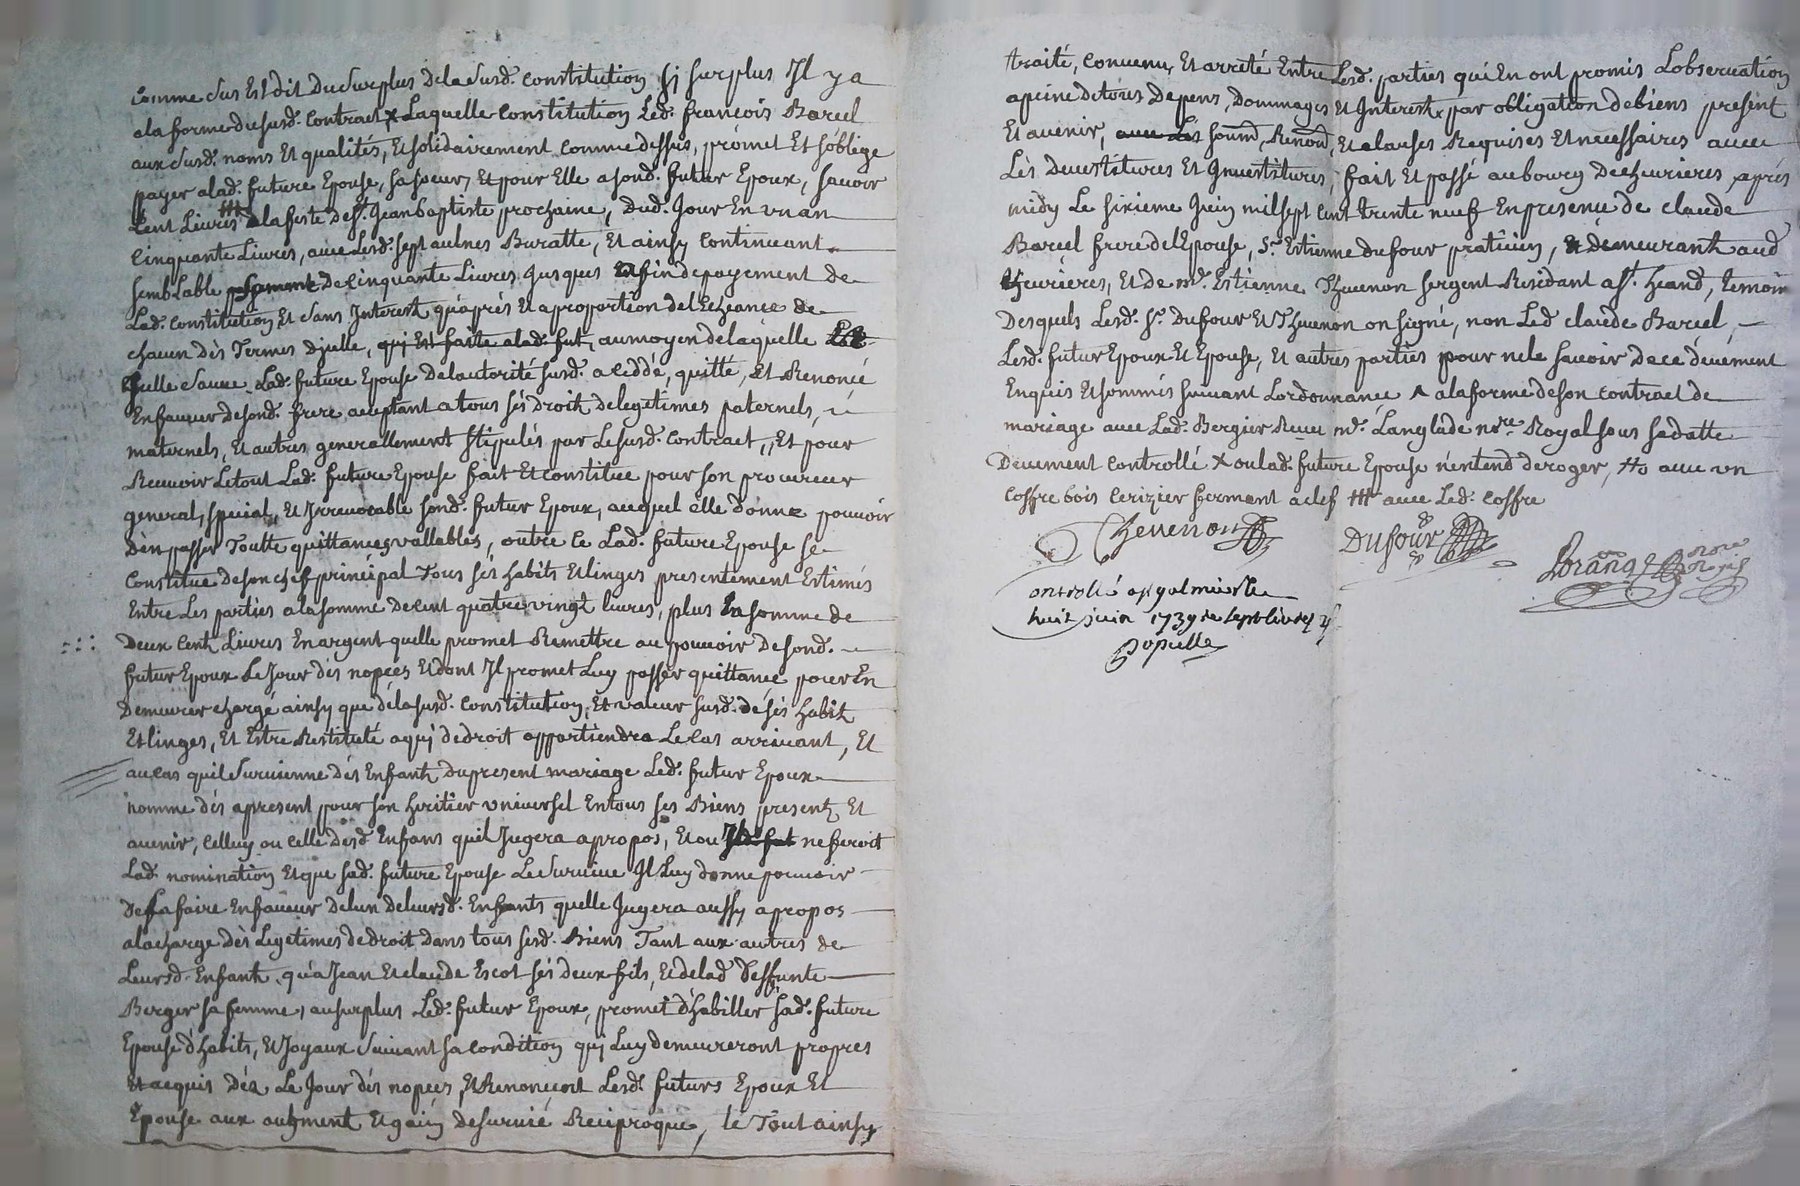 Comme sus Est dit Du Surplus De la Susd. Constitution sy surplus Il y a
a la forme du susd. Contract x Laquelle Constitution Led. françois Barcel
aux susd. noms Et qualités, Et solidairement Comme dessus, promet Et soblige
payer a lad. future Epouse, sa soeur, Et pour Elle a sond. futur Epoux, scavoir
Cent Livres ttt a la feste de st. Jean baptiste prochaine, Dud. Jour En un an
Cinquante Livres, avec Lesd. sept aulnes Buratte, Et ainsy Continuant
semblable De cinquante Livres Jusques En fin de payement de
Lad. Constitution Et sans Interest qu'aprés Et a proportion de L'Echeance de
chacun dès Termes d'jcelle, qui Est faite a lad. fut, au moyen de laquelle
Lad. future Epouse De l'autorité susd. a ceddé, quitté, Et Renoncé
En faveur de sond. frere acceptant a tous sés droit de legitimes paternels,
maternels, Et autres generallement stipulés par Le susd. Contract, Et pour
Recevoir Le tout Lad. future Epouse fait Et Constitue pour son procureur
general, special, Et Irrevocable sond. futur Epoux, auquel elle donne pouvoir
d'En passer Toutte quittances vallables, outre ce Lad. future Epouse se
Constitue de son chef principal Tous sés habits Et linges presentement Estimés
Entre Les parties a la somme de cent quatre vingt livres, plus La somme de
Deux Cent Livres En argent quelle promet Remettre au pouvoir De sond.
futur Epoux Le Jour dès nopces Et dont Il promet Luy passer quittance pour En
Demeurer chargé ainsy que de la susd. Constitution, Et valeur susd. de sés habit
Et linges, Et Estre Restitué a quj de droit appartiendra Le Cas arrivant, Et
au cas quil survienne dès Enfants du present mariage Led. futur Epoux
nomme dès apresent pour son heritier universel En tous ses Biens presents Et
avenir, Celluy ou Celle desd. Enfans quil Jugera a propos, Et ou ne fferoit
Lad. nomination Et que sad. future Epouse Le survive Il Luy donne pouvoir
De La faire En faveur de lun de leursd. Enfants quelle Jugera aussy a propos
a la charge dès Legitimes de droit dans tous sesd. Biens Tant aux autres de
Leursd. Enfants, qu'a Jean Et claude Escot sés deux fils, Et de lad. deffunte
Berger sa femme, au surplus Led. futur Epoux, promet d'habiller sad. future
Epouse d'habits, Et Joyaux suivant sa Condition quj Luy demeureront propres
Et acquis dés Le Jour dés nopces, Et Renonçont Lesd. futurs Epoux Et
Epouse aux augment Et gain de survie Reciproque, le Tout ainsy
traité, Convenu, Et arreté Entre Lesd. parties qui En ont promis L'observation
a peine de tous Depens, Dommages Et Interests par obligation de biens présent
Et avenir, avec Les soumd, Renond, Et clauses Requises Et necessaires avec
Lès Devestitures Et Investitures, fait Et passé au bourg De chevrieres, aprés
midy Le sixieme Juin mil sept cent trente neuf En presence de claude
Barcel frere de l'Epouse, sr. Estienne dufour praticien, demeurants aud
chevrières, Et de me. Estienne Thevenon sergent Residant a st. heand, temoin
Desquels Lesd. sr. Dufour Et Thevenon on signé, non Led claude Barcel,
Lesd. futur Epoux Et Epouse, Et autres parties pour ne le scavoir de ce dûement
Enquis Et sommés suivant L'ordonnance ^ a la forme de son contract de
mariage avec Lad. Bergier Receu me. Langlade nre. Royal sous sa datte
Deuement Controllé x ou lad. future Epouse n'entend deroger, tto avec un
Coffre bois Cerizier fermant a clef ttt avec Led. Coffre
Thevenon
DUfour
Controllé a st galmier le
huit juin 1739 re sept livres